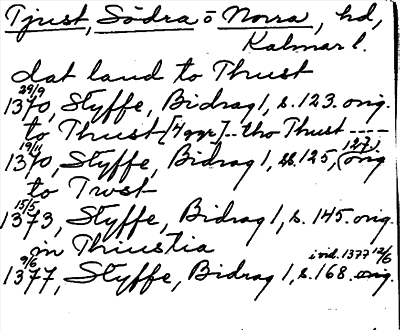 Tjust, Södra o Norra, hd,
Kalmar l.
dat land to Thust
29/9
1370, Styffe, Bidrag 1, s. 123. orig.
to Thust [4 ggr] .. tho Thust ----
19/11 127)
1370, Styffe, Bidrag 1, s. 125, (orig
to Trost
15/5
1373, Styffe, Bidrag 1, s. 145. orig.
in Thiustia
9/6 ivid. 1377 12/6
1377, Styffe, Bidrag 1, s. 168. orig.